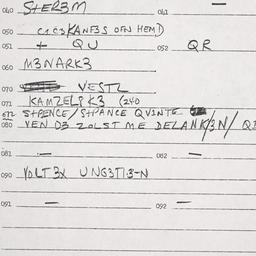 040 STER3M 041 —
050 C1C3(KANF3S OFN HEMD)
051 + QU 052 QR
060 M3NARK3
070 VESTL
071 KAMZELIK3 (240
072 STPENCE/STPANCE QVINTE
080 VEN D3 ZOLST ME DELANK/3N/
081 — 082 —
090 VOLT3X UNG3TI3-N
091 — 092 —